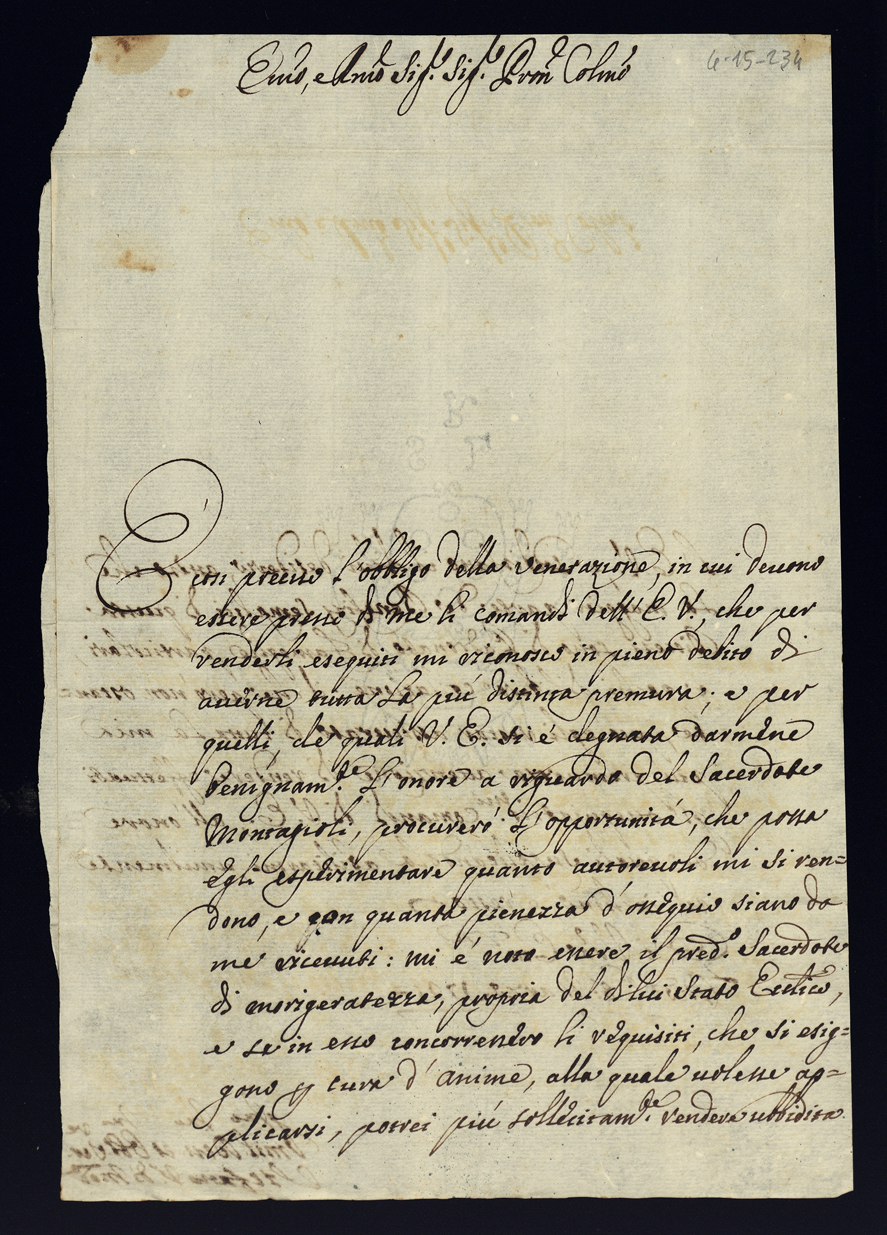 Emo, e Rmo Sig.r Sig.r Pron Colmo
6-15-234
È così preciso l'obbligo della venerazione, in cui devono
essere presso di me li comandi dell'E. V., che per
renderli eseguiti mi riconosco in pieno debito di
averne tutta la piú distinta premura; e per
quelli, de quali V. E. si é degnata darmene
benignam.te l'onore a riguardo del Sacerdote
Montagioli, procureró l'opportunitá, che possa
egli esperimentare quanto autorevoli mi si ren=
dono, e con quanta pienezza d'ossequio siano da
me ricevuti: mi é noto essere il pred.o Sacerdote
di morigeratezza, propria del di lui Stato Ecclico,
e se in esso concorrendo li requisiti, che si esig=
gono p cura d'anime, alla quale volesse ap=
plicarsi, potrei piú sollecitam.te rendere ubbidita